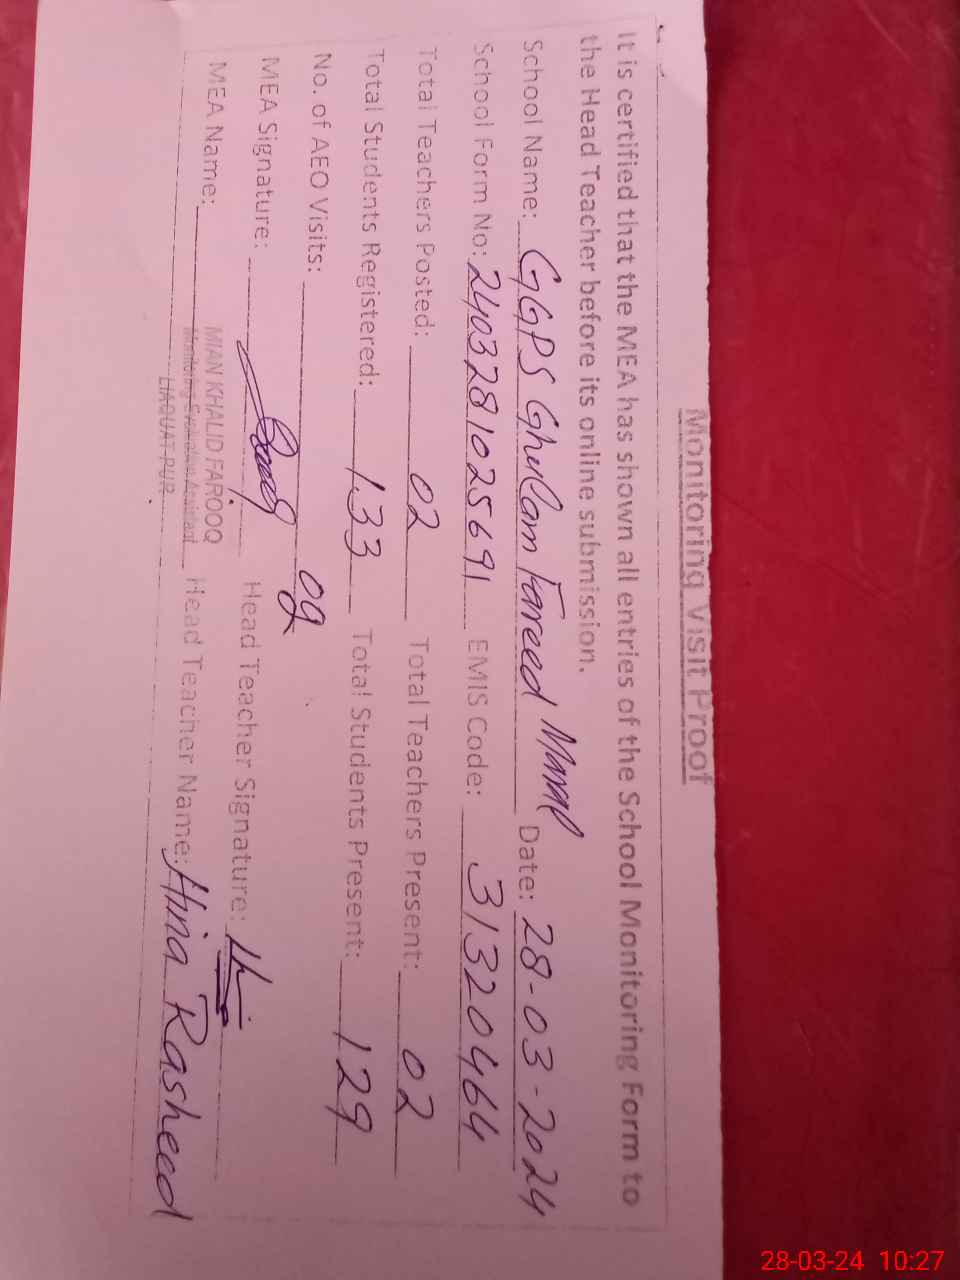 Monitoring Visit Proof
It is certified that the MEA has shown all entries of the School Monitoring Form to
the Head Teacher before its online submission.
School Name: GGPS Ghulam Fareed Date: 28-03-2024
School Form No: 2403281025691 EMIS Code: 31320464
Total Teachers Posted: 02 Total Teachers Present: 02
Total Students Registered: 133 Total Students Present: 129
No. of AEO Visits: 02
MEA Signature: Head Teacher Signature:
MEA Name: MIAN KHALID FAROOQ Head Teacher Name: Hina Rasheed
Monitoring Evaluation Assistant
LIAQUAT PUR
28-03-24 10:27